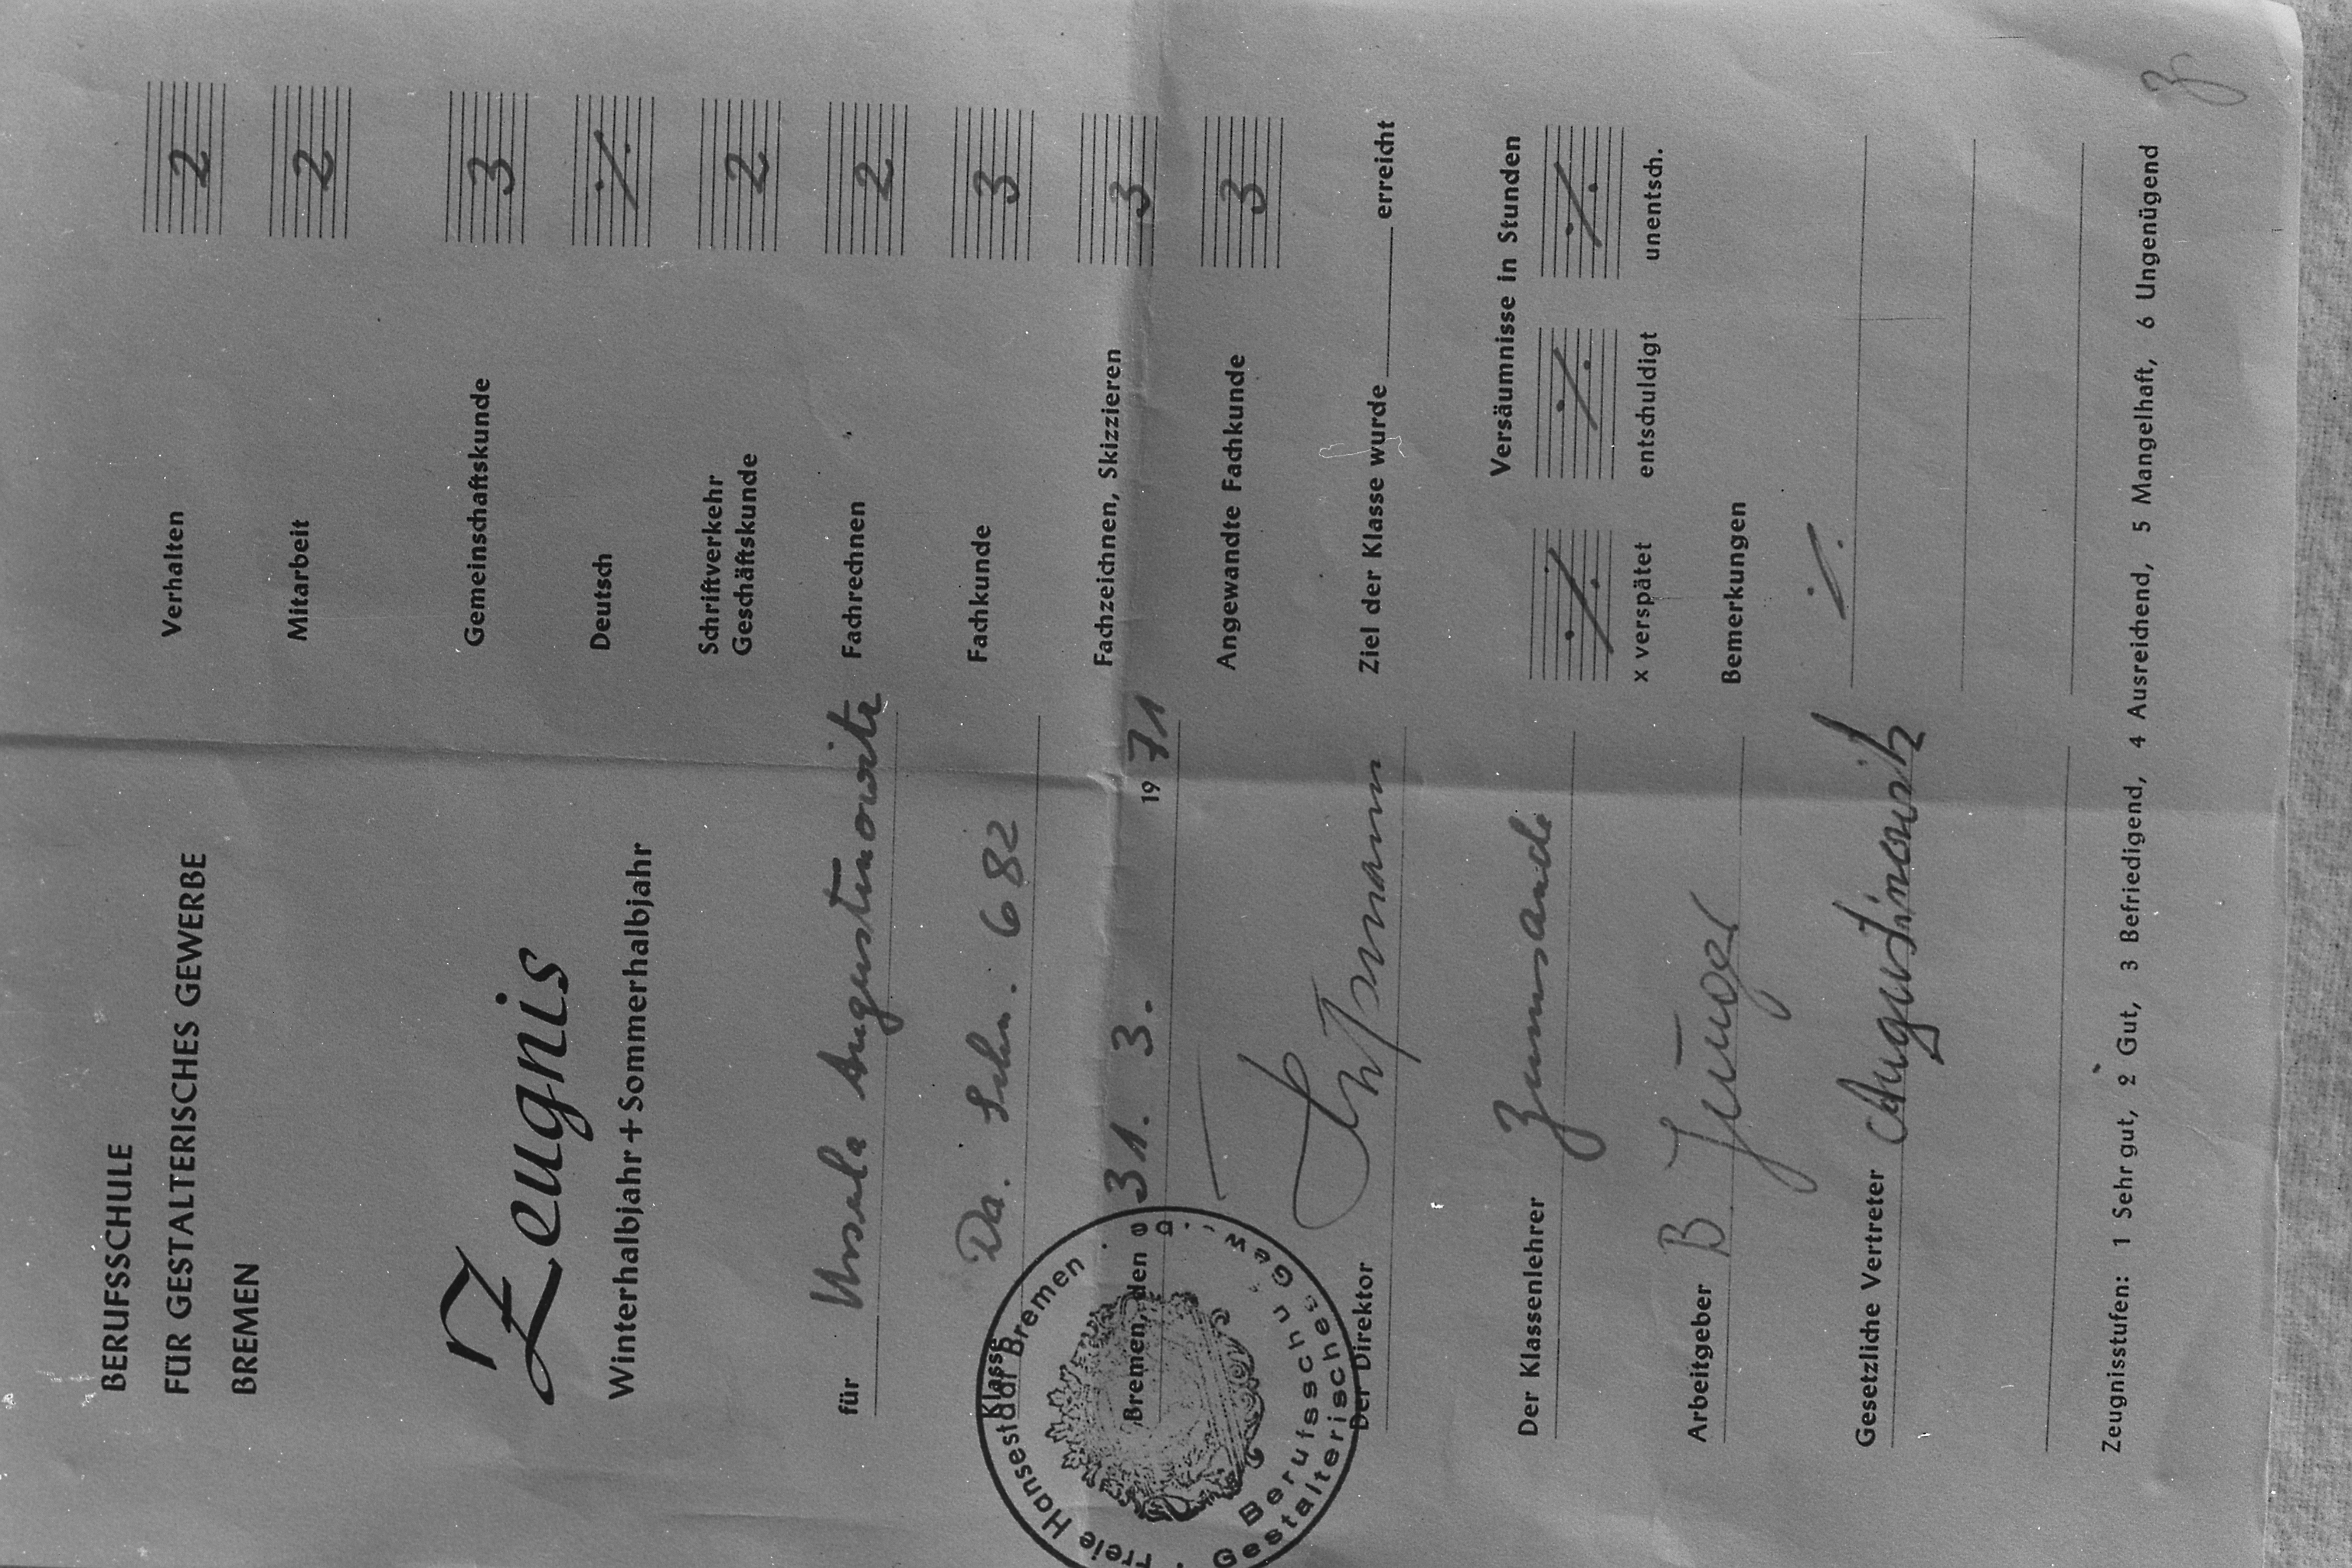 BERUFSSCHULE
FÜR GESTALTERISCHES GEWERBE
BREMEN
Zeugnis
Winterhalbjahr + Sommerhalbjahr
für Ursula Augustinowitz
Klasse Da. Schn. 682
Bremen, den 31. 3. 1971
Der Direktor
Der Klassenlehrer Zumsande
Arbeitgeber B Jünger
Gesetzliche Vertreter Augustinowitz
Freie Hansestadt Bremen
Berufsschu
Gestalterisches Gew
Verhalten 2
Mitarbeit 2
Gemeinschaftskunde 3
Deutsch ·/.
Schriftverkehr
Geschäftskunde 2
Fachrechnen 2
Fachkunde 3
Fachzeichnen, Skizzieren 3
Angewandte Fachkunde 3
Ziel der Klasse wurde erreicht
Versäumnisse in Stunden
·/. ·/. ·/.
x verspätet entschuldigt unentsch.
Bemerkungen
·/.
Zeugnisstufen: 1 Sehr gut, 2 Gut, 3 Befriedigend, 4 Ausreichend, 5 Mangelhaft, 6 Ungenügend